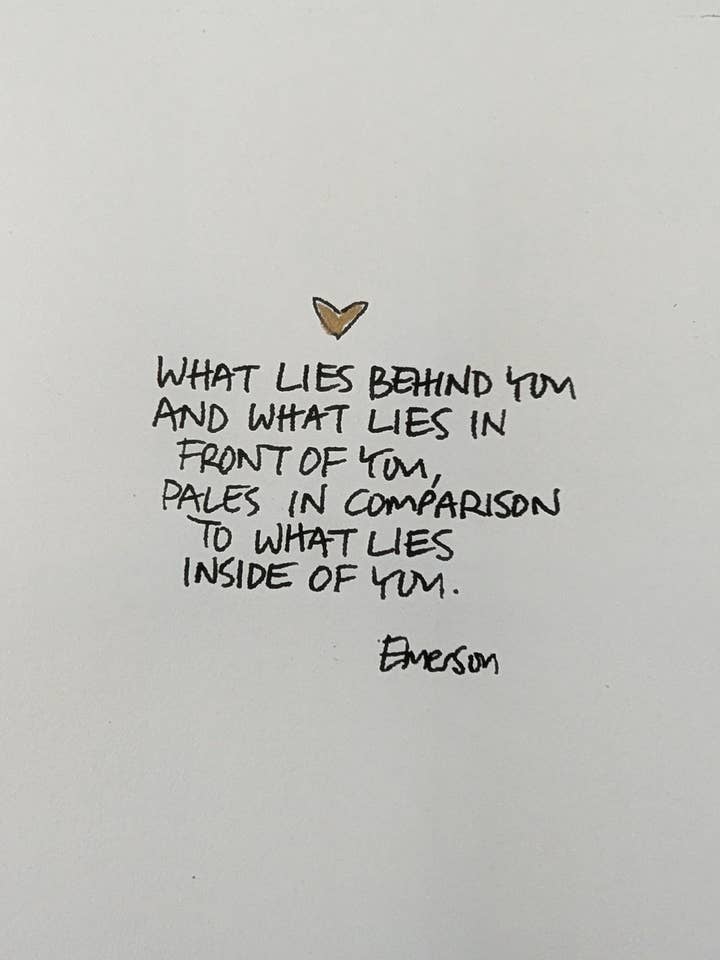 WHAT LIES BEHIND YOU
AND WHAT LIES IN
FRONT OF YOU,
PALES IN COMPARISON
TO WHAT LIES
INSIDE OF YOU.
Emerson